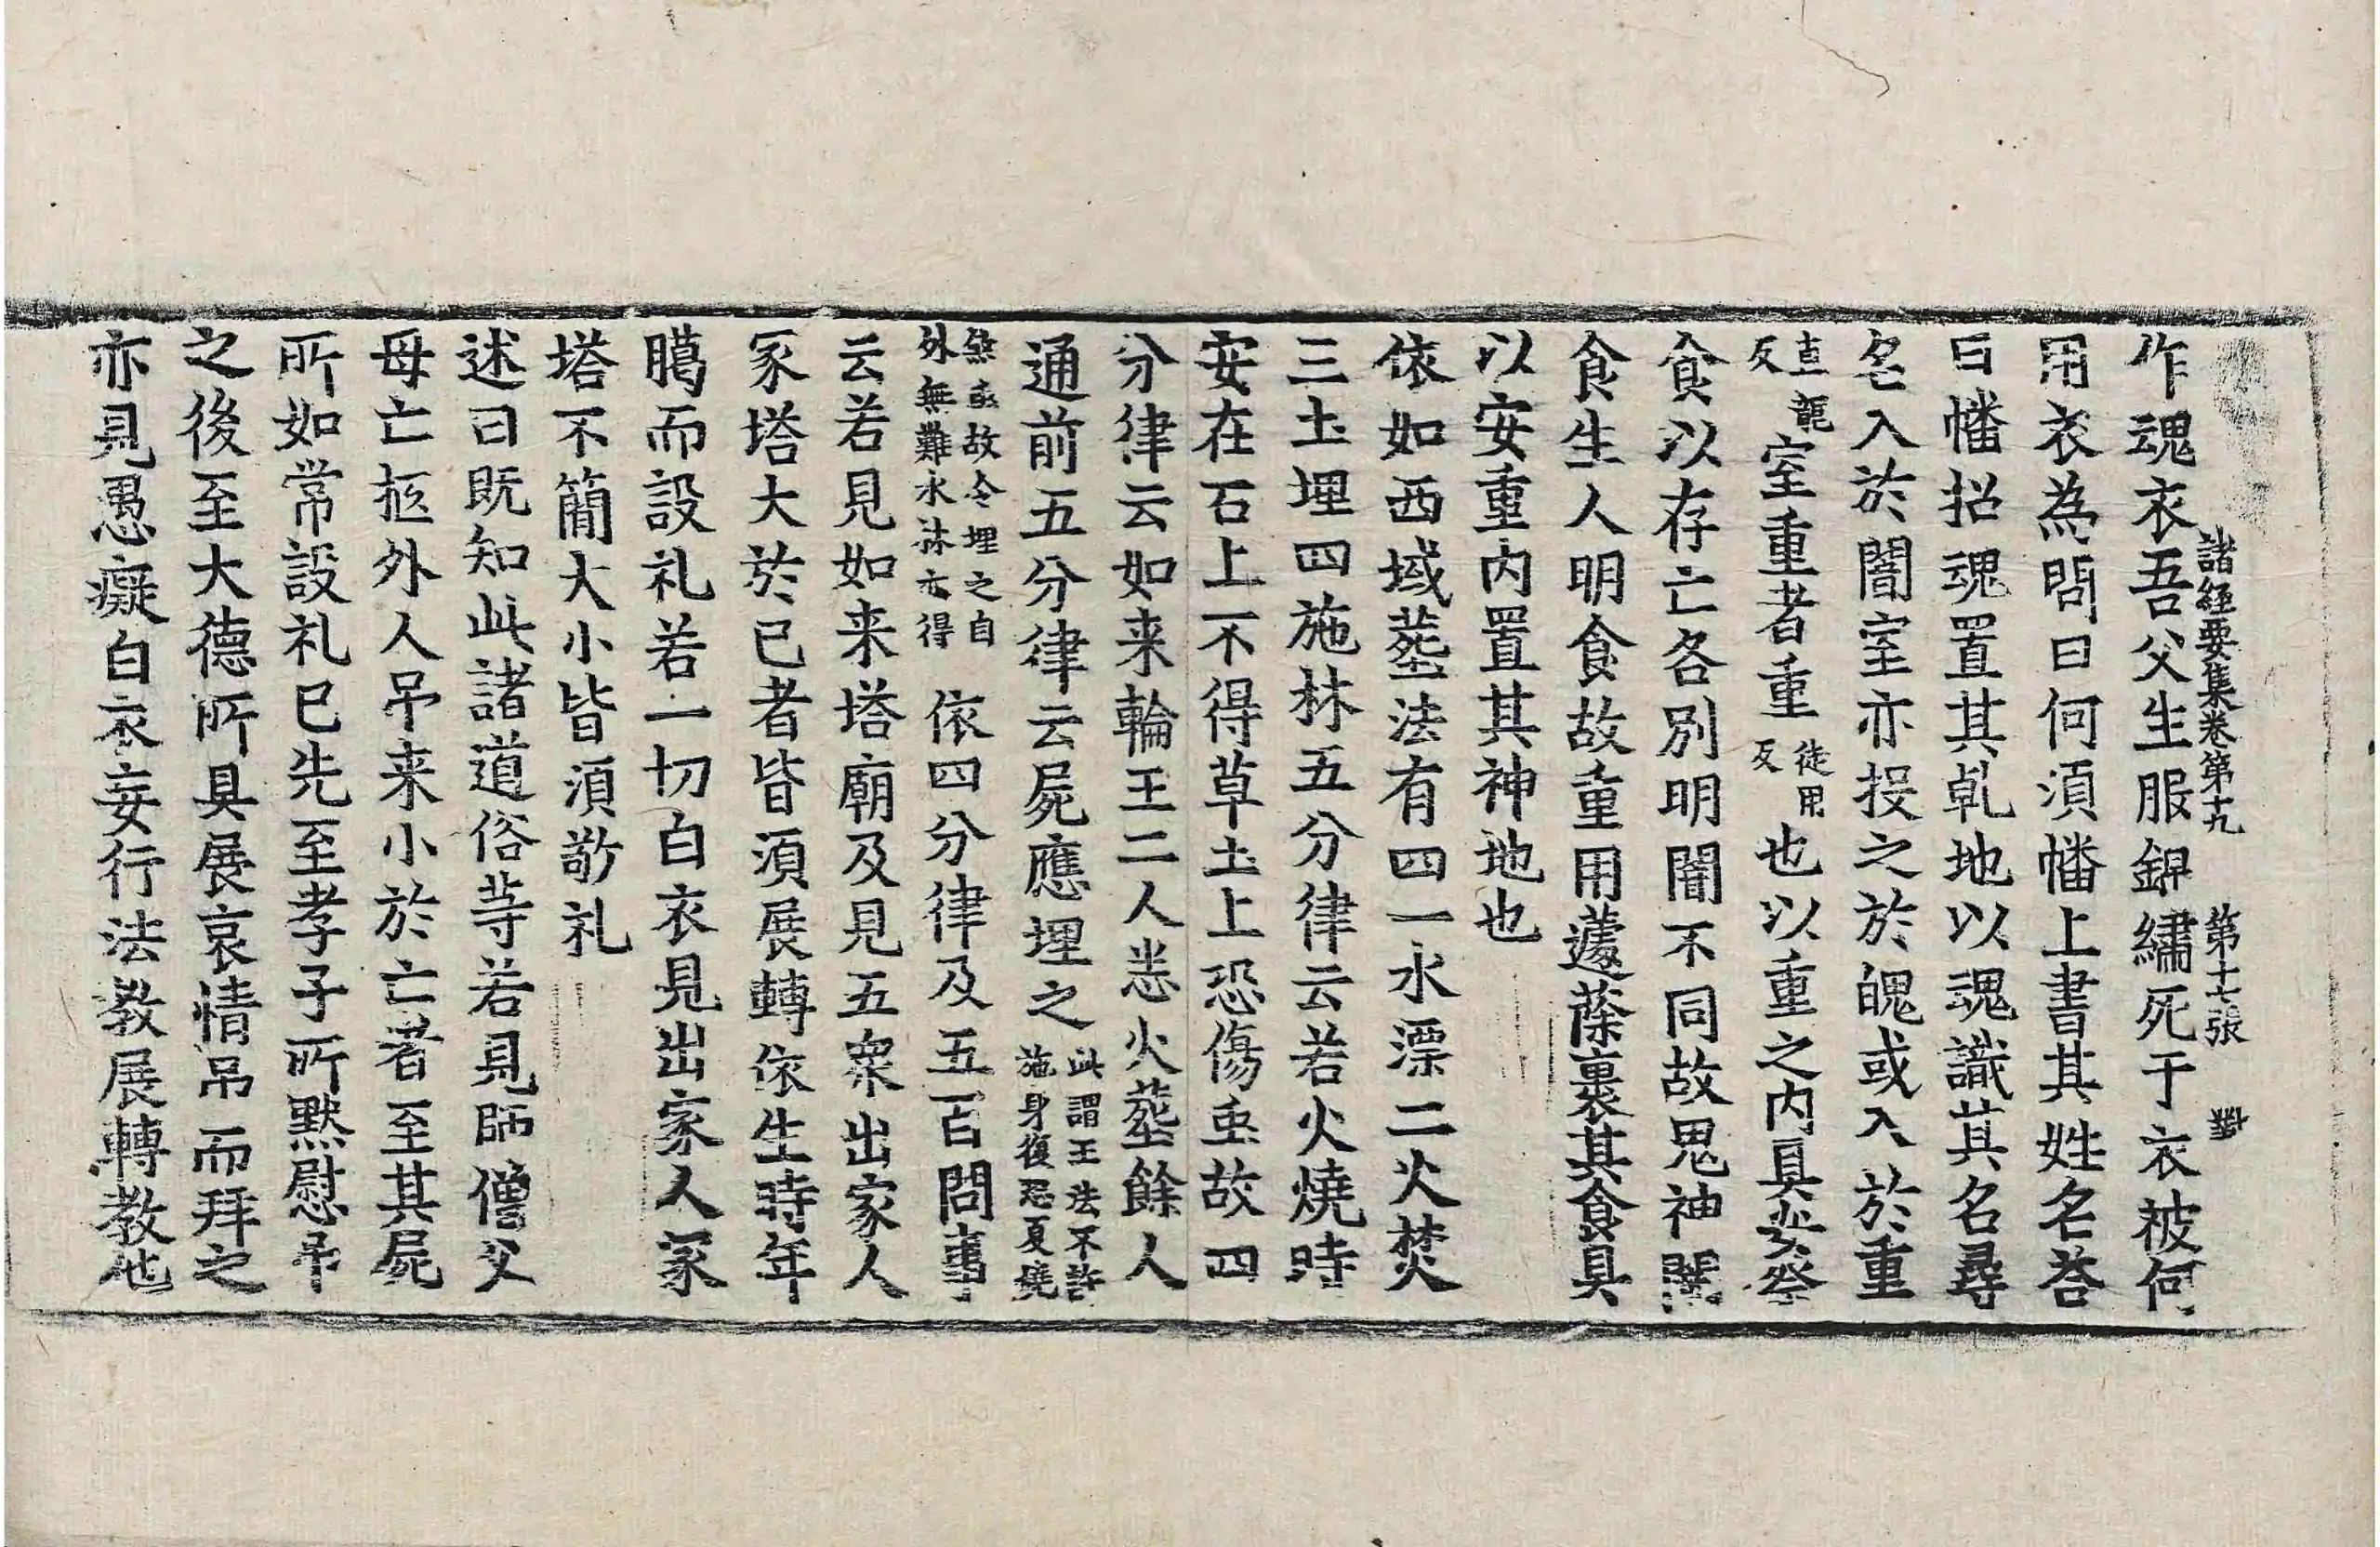 諸經要集卷第十九 第十七張 對
作魂衣吾父生服錦繡死于衣被何
用衣為問曰何須幡上書其姓名荅
曰幡招魂置其乹地以魂識其名尋
名入於闇室亦投之於魄或入於重
直龍反室重者重徒用反也以重之内具安祭
食以存亡各別明闇不同故鬼神闇
食生人明食故重用蘧蒢裹其食具
以安重内置其神地也
依如西域葬法有四一水漂二火焚
三土埋四施林五分律云若火燒時
安在石上不得草土上恐傷虫故四
分律云如来輪王二人悉火葬餘人
通前五分律云屍應埋之此謂王法不許施身復恐夏燒
煞虫故令埋之自外無難水林亦得 依四分律及五百問事
云若見如来塔廟及見五衆出家人
冢塔大於已者皆須展轉依生時年
臈而設礼若一切白衣見出家人冢
塔不簡大小皆須敬礼
述曰既知此諸道俗等若見師僧父
母亡柩外人吊来小於亡者至其屍
所如常設礼已先至孝子所黙慰吊
之後至大德所具展哀情吊而拜之
亦見愚癡白衣妄行法教展轉教他